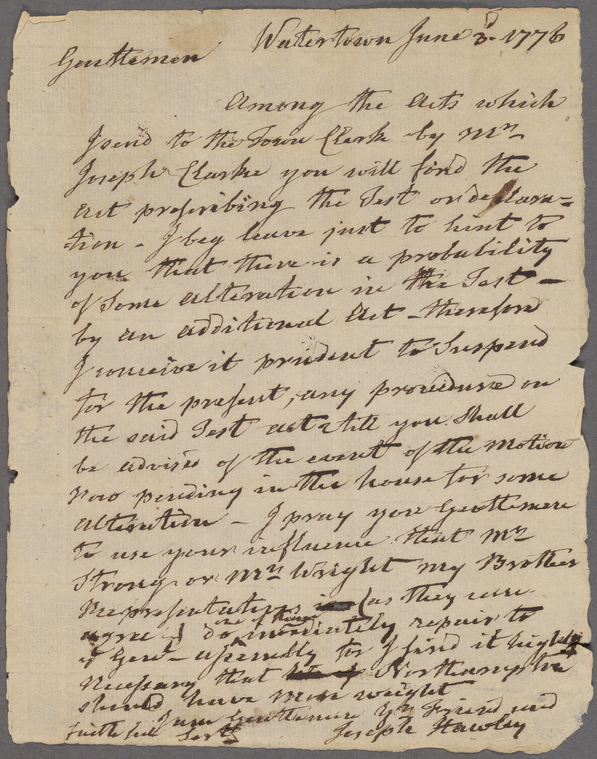 Watertown June 3d. 1776
Gentlemen
Among the Acts which
I send to the Town Clerk by Mr.
Joseph Clarke you will find the
Act prescribing the Test or declara=
=tion - I beg leave just to hint to
you that there is a probability
of some alteration in the Test -
by an additional Act - therefore
I conceive it prudent to Suspend
for the present, any procedure on
the said Test act till you Shall
be advised of the event of the Motion
now pending in the house for some
alteration - I pray you Gentlemen
to use your influence that Mr.
Strong or Mr. Wright my Brother
Representatives (as they
agree) do one of them imediately repair to
ye Genl- assembly for I find it highly
necessary that Northampton
should have more weight
I am Gentlemen Yr. Friend and
faithfull Servt. Joseph Hawley